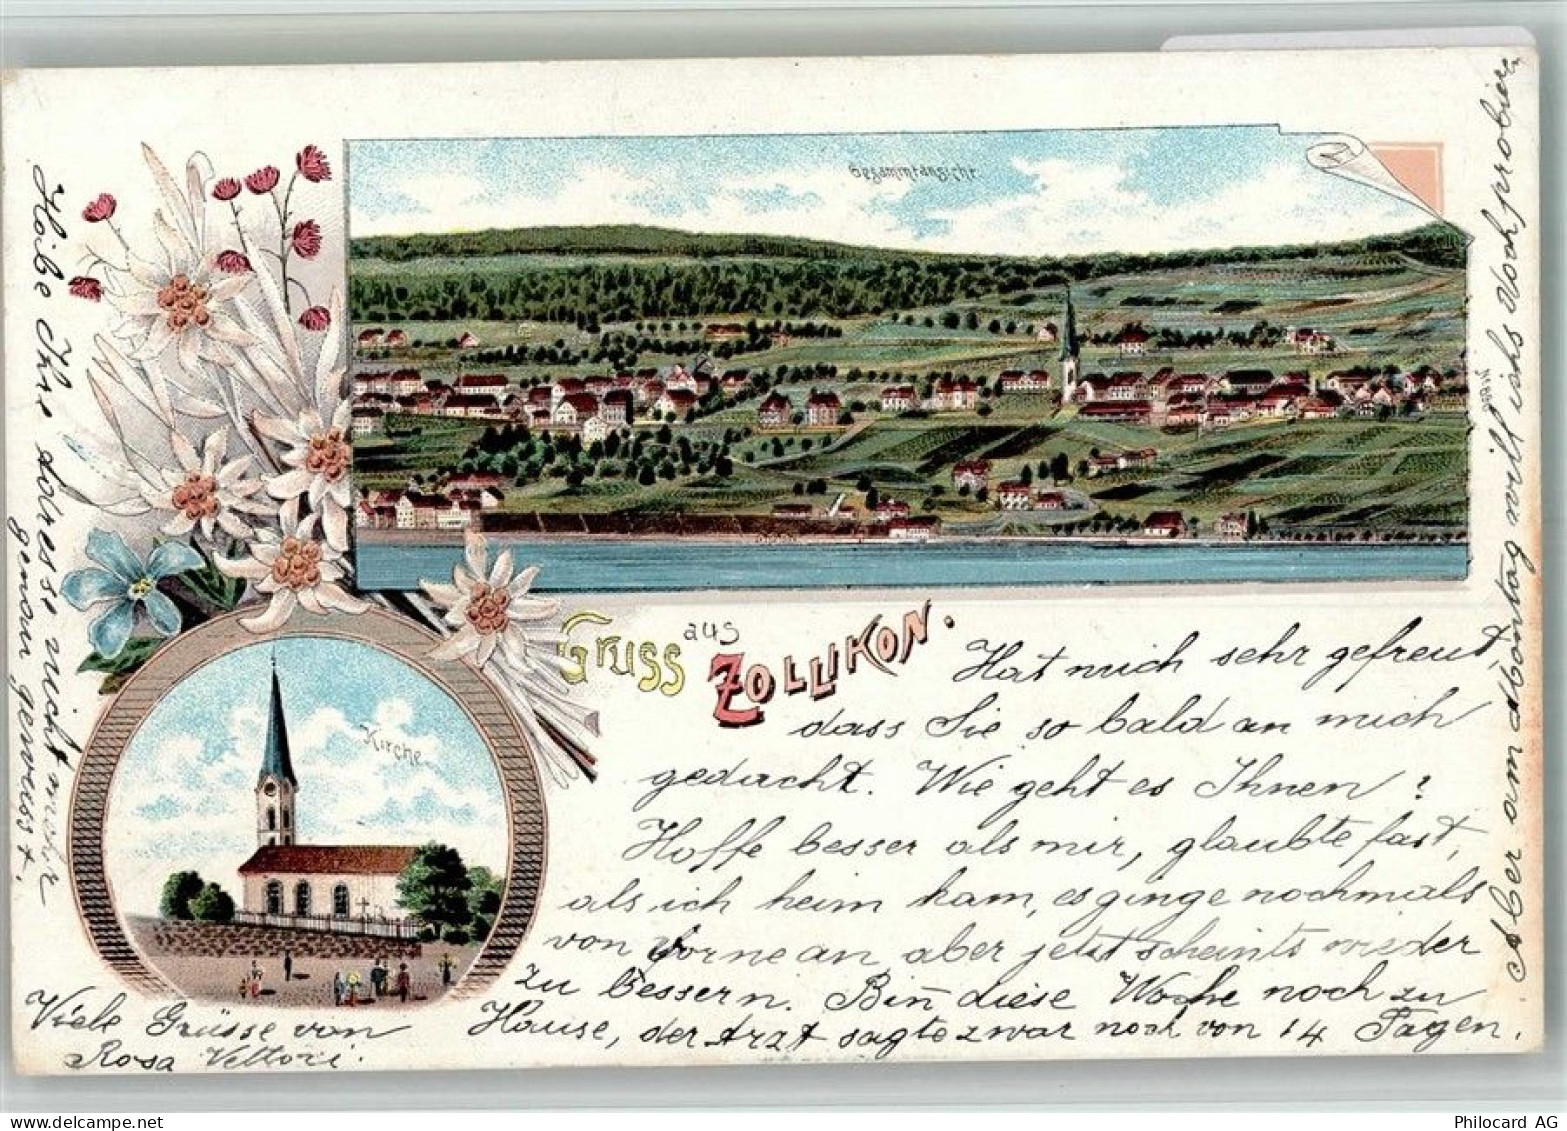 Gesammtansicht.
Kirche.
Gruss aus ZOLLIKON.
Hat mich sehr gefreut,
dass Sie so bald an mich
gedacht. Wie geht es Ihnen?
Hoffe besser als mir, glaubte fast,
als ich heim kam, es ginge nochmals
von vorne an aber jetzt scheints wieder
zu bessern. Bin diese Woche noch zu
Hause, der Arzt sagte zwar noch von 14 Tagen.
Aber am Montag will ichs doch probieren
Habe Ihre Adresse nicht mehr
genau gewusst.
Viele Grüsse von
Rosa Vettori.
Philocard AG